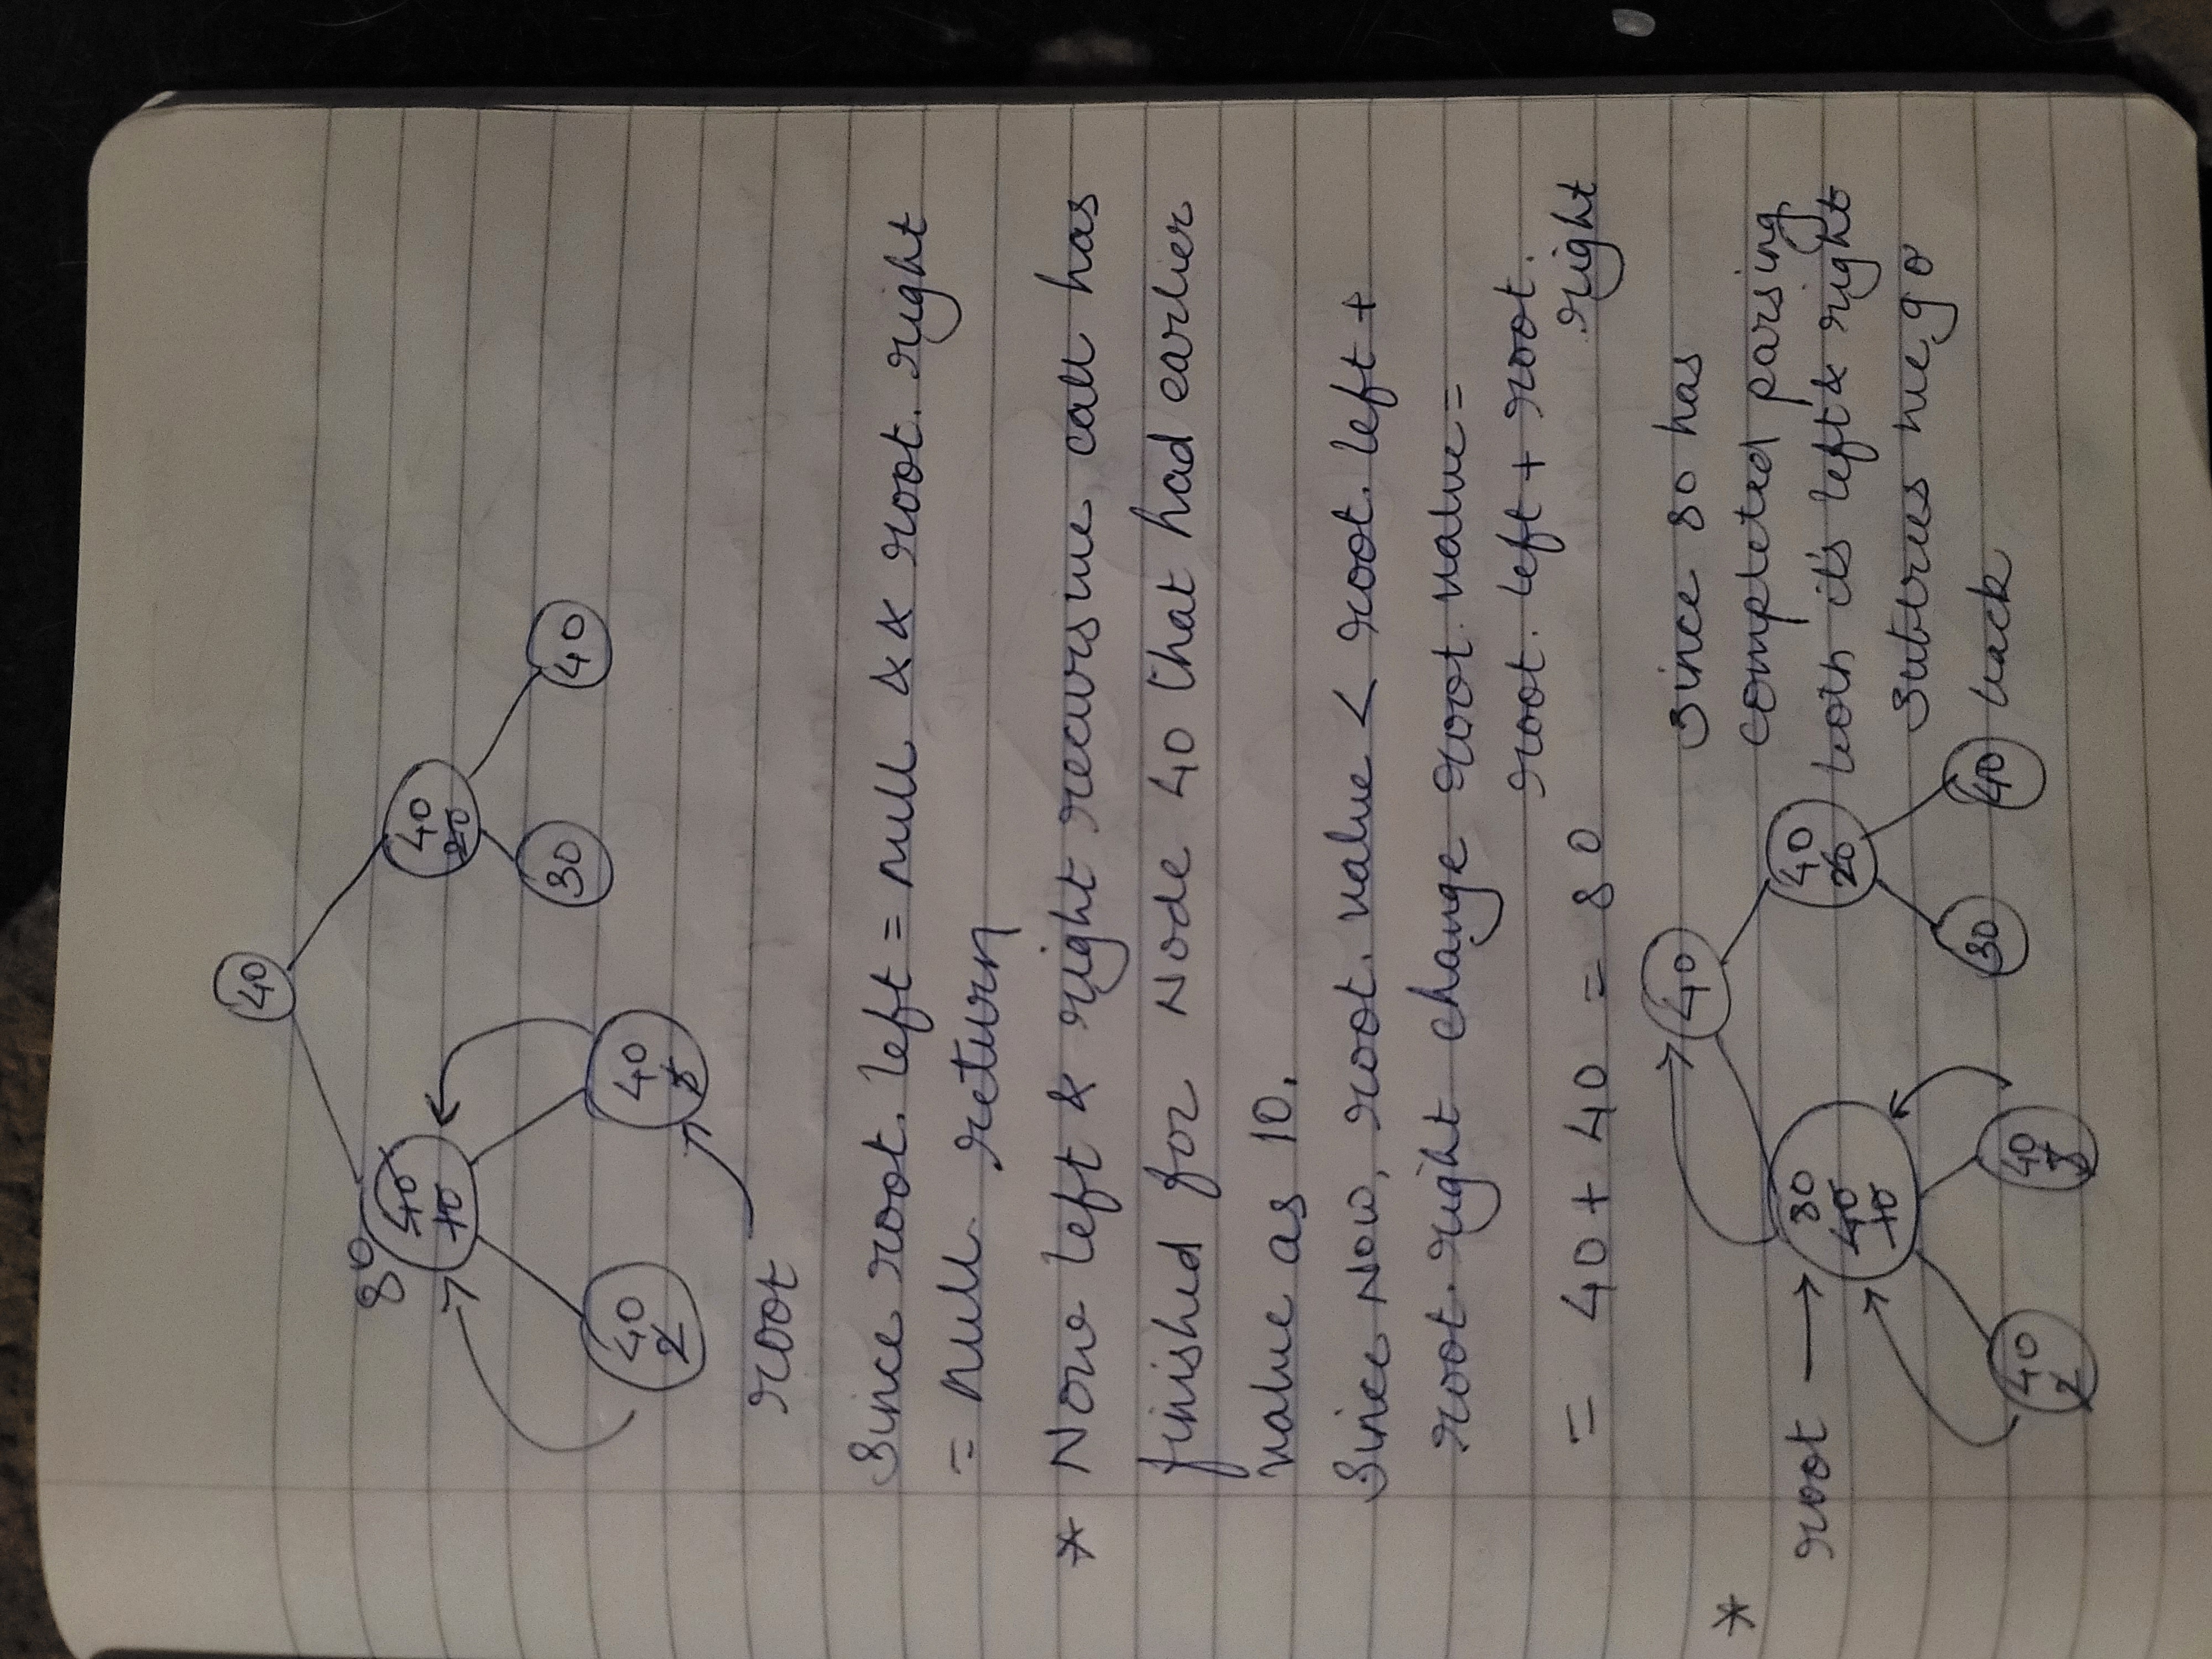 40
80
40
10
40
20
30
40
40
2
40
5
root
Since root. left = null && root. right
= null. return
* Now left & right recursive call has
finished for Node 40 that had earlier
value as 10.
Since Now, root. value < root. left +
root. right change root. value =
root. left + root.
right
= 40 + 40 = 80
40
Since 80 has
completed parsing
*
root
80
40
10
40
20
both it's left & right
subtrees we go
30
40
back
40
2
40
5